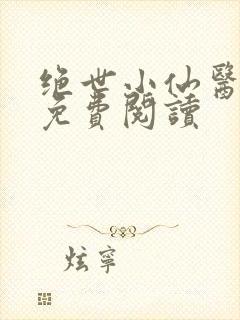 绝世小仙醫
免費閱讀
炫寧